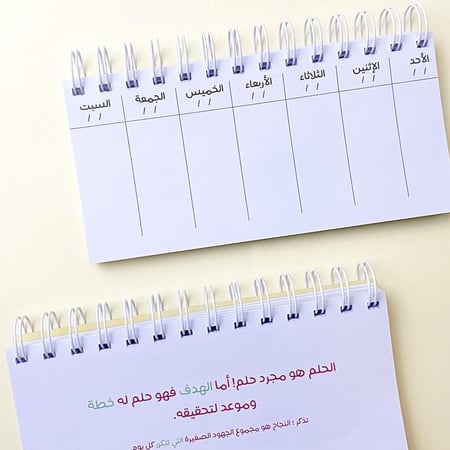 الأحد الإثنين الثلاثاء الأربعاء الخميس الجمعة السبت
/ / / / / / / / / / / / / /
الحلم هو مجرد حلم! أما الهدف فهو حلم له خطة
وموعد لتحقيقه.
تذكر؛ النجاح هو مجموع الجهود الصغيرة التي تتكرر كل يوم